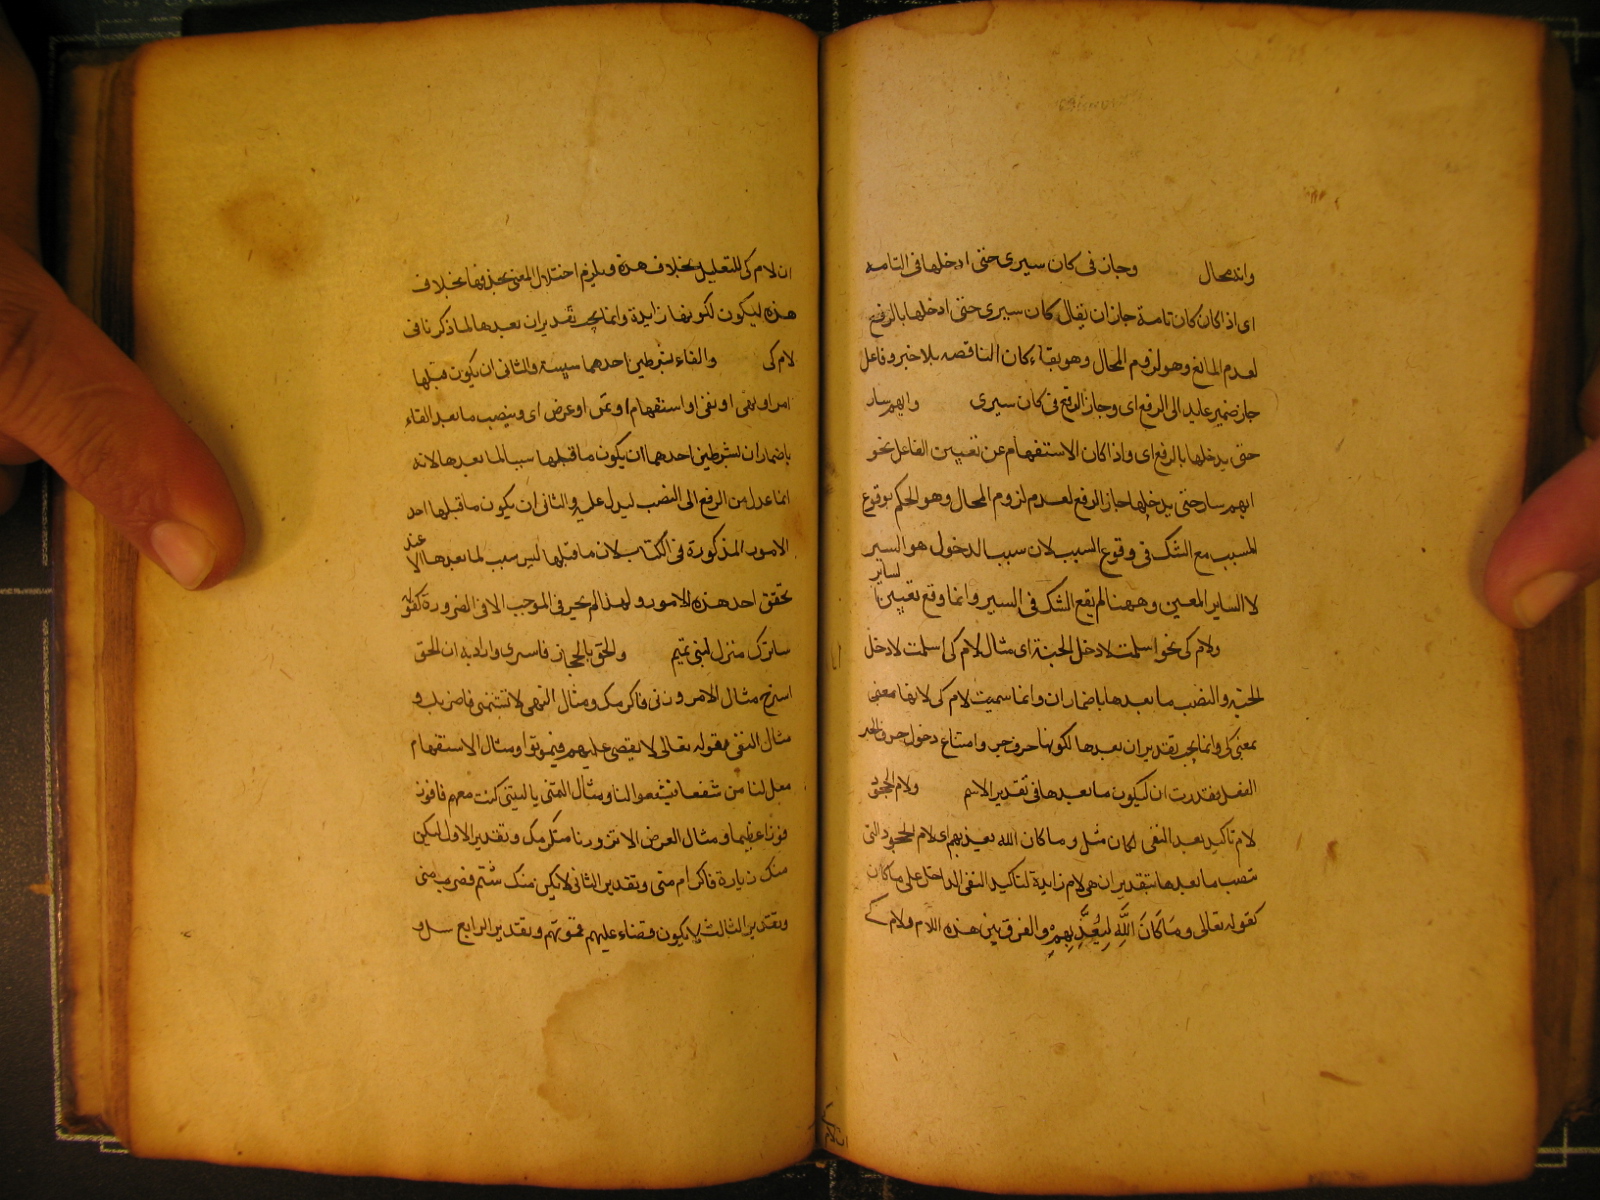 وانه محال وجاز فى كان سيرى حتى ادخلها فى التامه
اى اذا كان كان تامة جاز ان يقال كان سيرى حتى ادخلها بالرفع
لعدم المانع وهو لزوم المحال وهو بقاء كان الناقصه بلا خبر وفاعل
جاز ضمير عايد الى الرفع اى وجاز الرفع فى كان سيرى وايهم سار
حتى يدخلها بالرفع اى واذا كان الاستفهام عن تعيين الفاعل نحو
ايهم سار حتى يدخلها جاز الرفع لعدم لزوم المحال وهو الحكم بوقوع
المسبب مع الشك فى وقوع السبب لان سبب الدخول هو السير
لا الساير المعين وههنا لم يقع الشك فى السير وانما وقع تعيين الساير
ولام كى نحو اسلمت لادخل الجنة اى مثال لام كى اسلمت لادخل
الجنة والنصب ما بعدها باضمار ان وانما سميت لام كى لانها معنى
بمعنى كى وانما يجب تقدير ان بعدها لكونها حرف جر وامتناع دخول حرف الجر
الفعل فقدرت ان ليكون ما بعدها فى تقدير الاسم ولام الجحود
لام تاكيد بعد النفى لكان مثل وما كان الله ليعذبهم اى لام الجحود التى
تنصب ما بعدها بتقدير ان هى لام زايدة لتاكيد النفى الداخل على ما كان
كقوله تعالى وَمَا كَانَ اللَّهِ لِيُعَذِّبِهِمْ والفرق بين هذه اللام ولام كى
ان لام
ان لام كى للتعليل بخلاف هذه ويلزم اختلال المعنى بحذفها بخلاف
هذه ليكون لكونها زايدة وانما يجب تقدير ان بعدها لما ذكرنا فى
لام كى والفاء بشرطين احدهما سببية والثانى ان يكون قبلها
امر او نهى او نفى او استفهام او تمن او عرض اى وينصب ما بعد الفاء
باضمار ان بشرطين احدهما ان يكون ما قبلها سببا لما بعدها لانه
انما عدل من الرفع الى النصب ليدل عليه والثانى ان يكون ما قبلها احد
الامور المذكورة فى الكتاب لان ما قبلها ليس سبب لما بعدها الا عند
تحقق احد هذه الامور ولهذا لم يخبر فى الموجب الا فى الضرورة كقوله
ساترك منزل لبنى تميم والحق بالحجاز فاستريحا واراد به ان الحق
استرح مثال الامر وزرنى فاكرمك ومثال النهى لا تشتمنى فاضربك و
مثال النفى فقوله تعالى لا يقضى عليهم فيموتوا ومثال الاستفهام
فهل لنا من شفعاء فيشفعوا لنا ومثال التمنى يا ليتنى كنت معهم فافوز
فوزا عظيما ومثال العرض الا تزورنا فنكرمك وتقدير الاول ليكن
منك زيارة فاكرام منى وتقدير الثانى لا يكن منك شتم فضرب منى
وتقدير الثالث لا يكون قضاء عليهم فموتهم وتقدير الرابع سل و